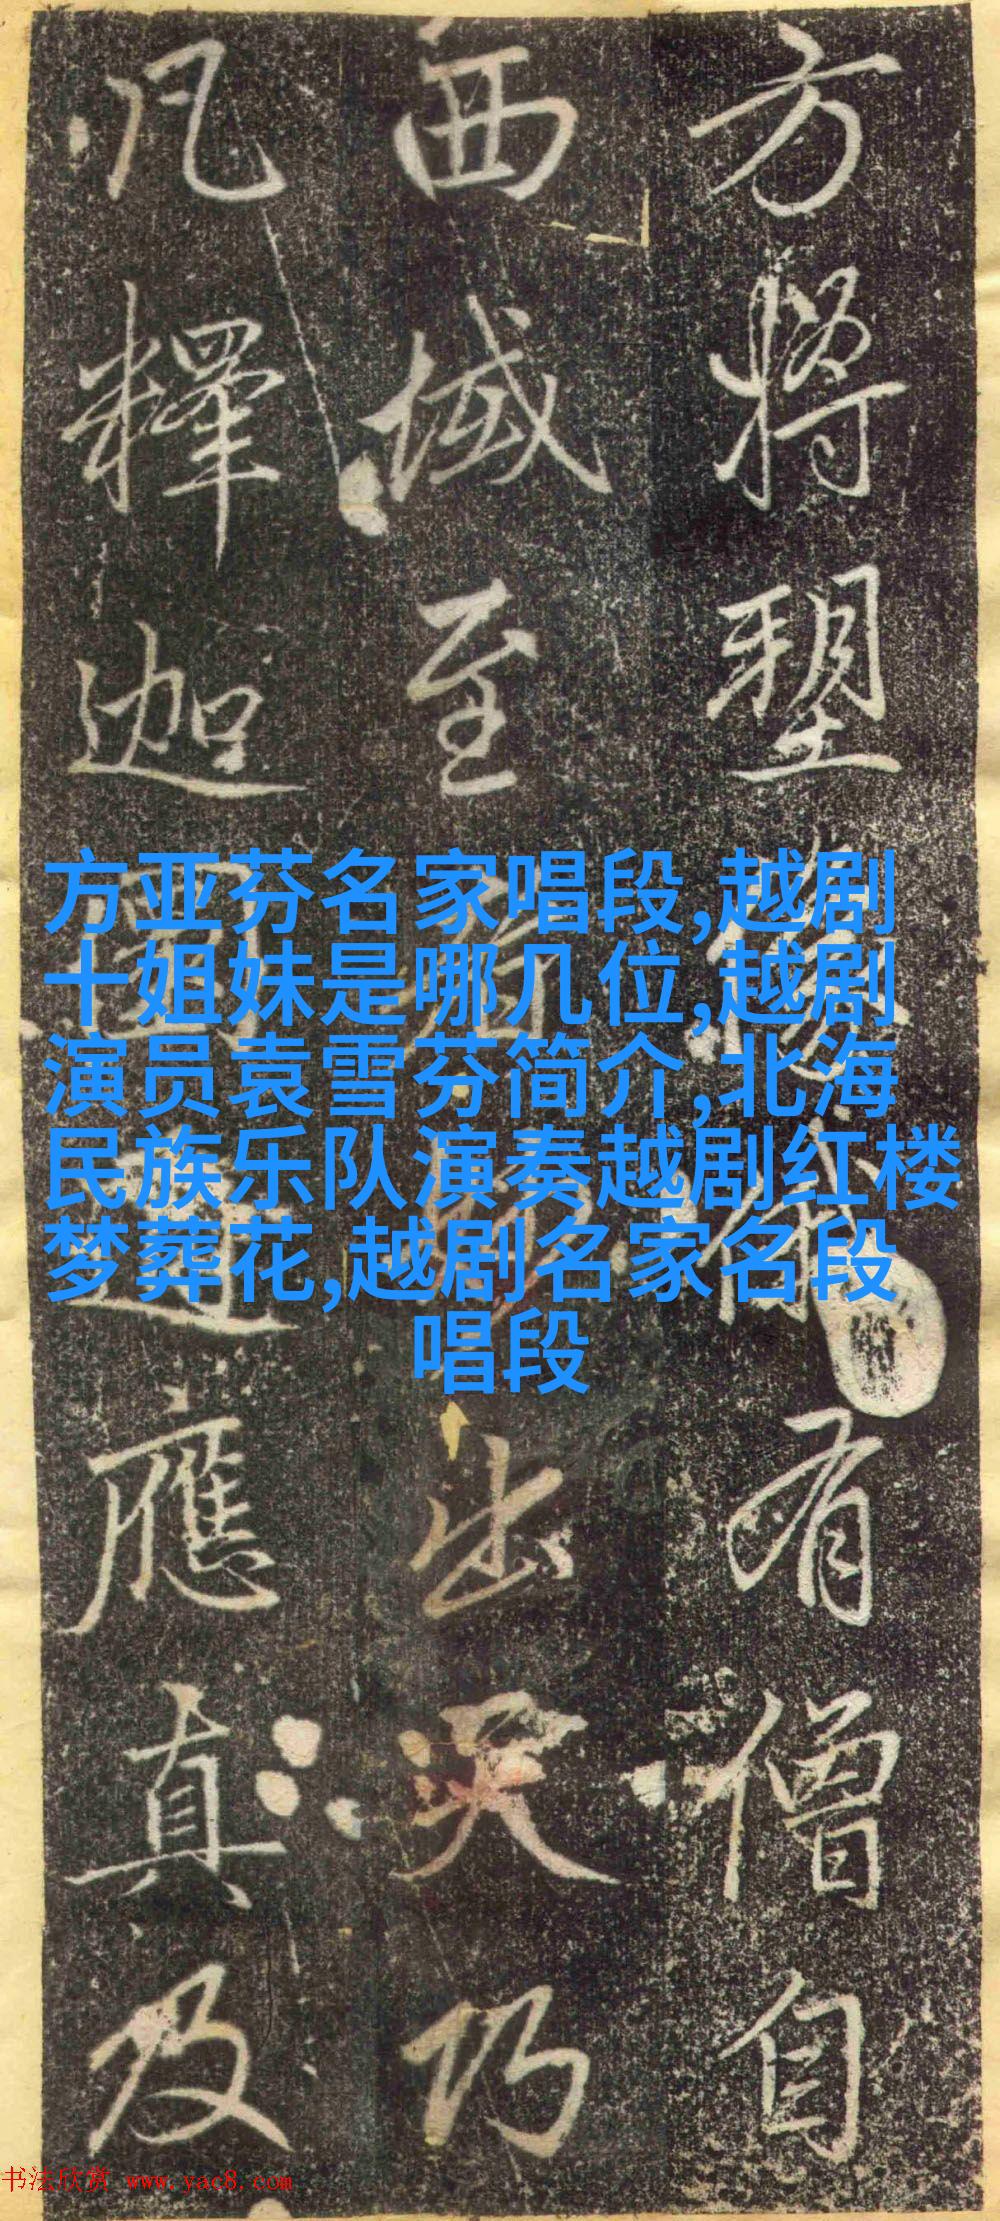 方将塑
有僧自
西域至
出天乃
凡釋迦
應真及
方亚芬名家唱段,越剧
十姐妹是哪几位,越剧
演员袁雪芬简介,北海
民族乐队演奏越剧红楼
梦葬花,越剧名家名段
唱段
书法欣赏 www.yac8.com